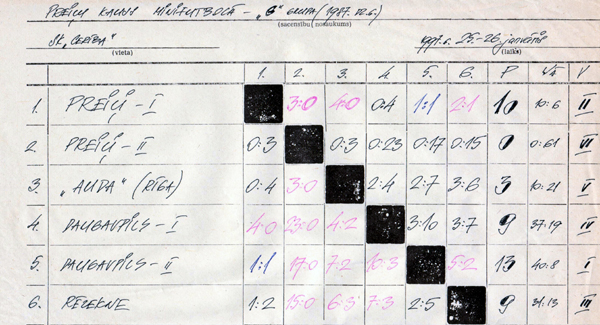 PREIĻU KAUSS MINIFUTBOLĀ - „B" GRUPA (1987.dz.g.)
(sacensību nosaukums)
SK „CERĪBA" 1997.g. 25.-26. janvāris
(vieta) (laiks)
1. 2. 3. 4. 5. 6. P V:Z V
1. PREIĻI - I 3:0 4:0 0:4 1:1 2:1 10 10:6 II
2. PREIĻI - II 0:3 0:3 0:23 0:17 0:15 0 0:61 VI
3. „AUDA" (RĪGA) 0:4 3:0 2:4 2:7 3:6 3 10:21 V
4. DAUGAVPILS - I 4:0 23:0 4:2 3:10 3:7 9 37:19 IV
5. DAUGAVPILS - II 1:1 17:0 7:2 10:3 5:2 13 40:8 I
6. RĒZEKNE 1:2 15:0 6:3 7:3 2:5 9 31:13 III